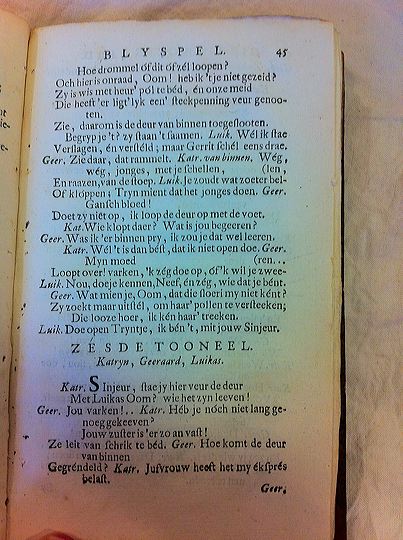 BLYSPEL. 45
Hoe drommel óf dit óf zél loopen?
Och hier is onraad, Oom! heb ik 't je niet gezeid?
Zy is wis met heur' pól te béd, én onze meid
Die heeft 'er ligt'lyk een' steekpenning veur genoo-
ten.
Zie, daarom is de deur van binnen toegeslooten.
Begryp je 't? zy staan 't saamen. Luik. Wél ik stae
Verslagen, én versteld; maar Gerrit schél eens drae.
Geer. Zie daar, dat rammelt. Katr. van binnen. Wég,
wég, jonges, met je schellen, (len,
En raazen, van de stoep. Luik. Je zoudt wat zoeter bel-
Of klóppen; Tryn mient dat het jonges doen. Geer.
Gansch bloed!
Doet zy niet op, ik loop de deur op met de voet.
Kat. Wie klopt daer? Wat is jou begeeren?
Geer. Was ik 'er binnen pry, ik zou je dat wel leeren.
Katr. Wél 't is dan bést, dat ik niet open doe. Geer.
Myn moed (ren...
Loopt over! varken, 'k zég doe op, óf 'k wil je zwee-
Luik. Nou, doe je kennen, Neef, én zég, wie dat je bént.
Geer. Wat mien je, Oom, dat die sloeri my niet ként?
Zy zoekt maar uitstél, om haar' pollen te versteeken;
Die looze hoer, ik kén haar' treeken.
Luik. Doe open Tryntje, ik bén 't, mit jouw Sinjeur.
ZÉSDE TOONEEL.
Katryn, Geeraard, Luikas.
Katr. SInjeur, stae jy hier veur de deur
Met Luikas Oom? wie het zyn leeven!
Geer. Jou varken!.. Katr. Héb je nóch niet lang ge-
noeg gekeeven?
Jouw zuster is 'er zo an vast!
Ze leit van schrik te béd. Geer. Hoe komt de deur
van binnen
Gegréndeld? Katr. Jufvrouw heeft het my éksprés
belast.
Geer.